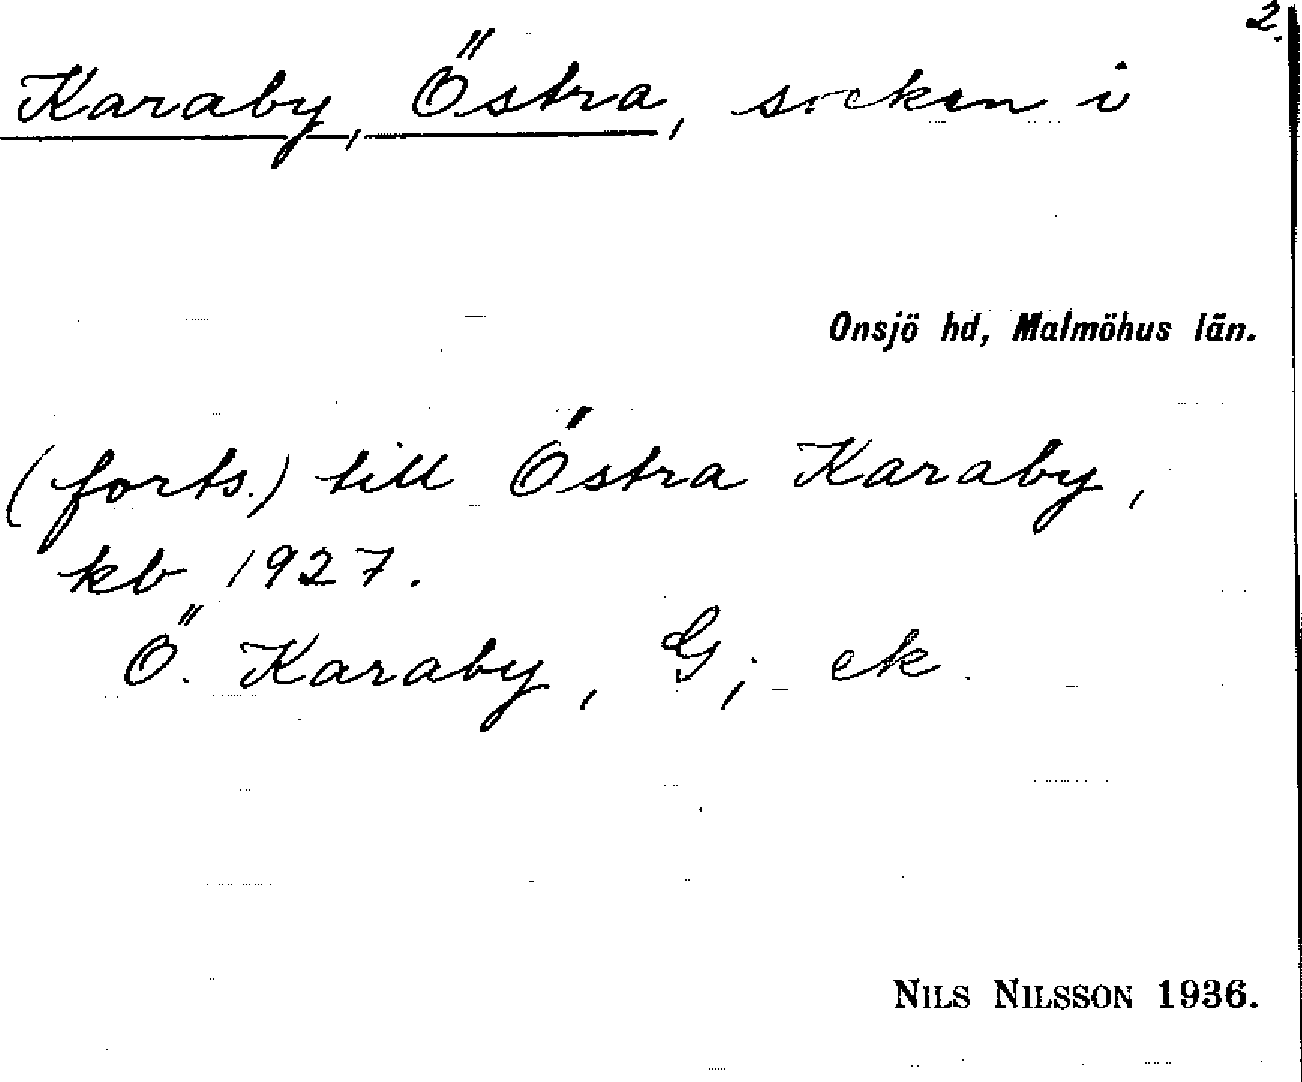 2.
Karaby, Östra, socken i
Onsjö hd, Malmöhus län.
(forts.) till Östra Karaby,
kb 1927.
Ö. Karaby, G; ek.
NILS NILSSON 1936.